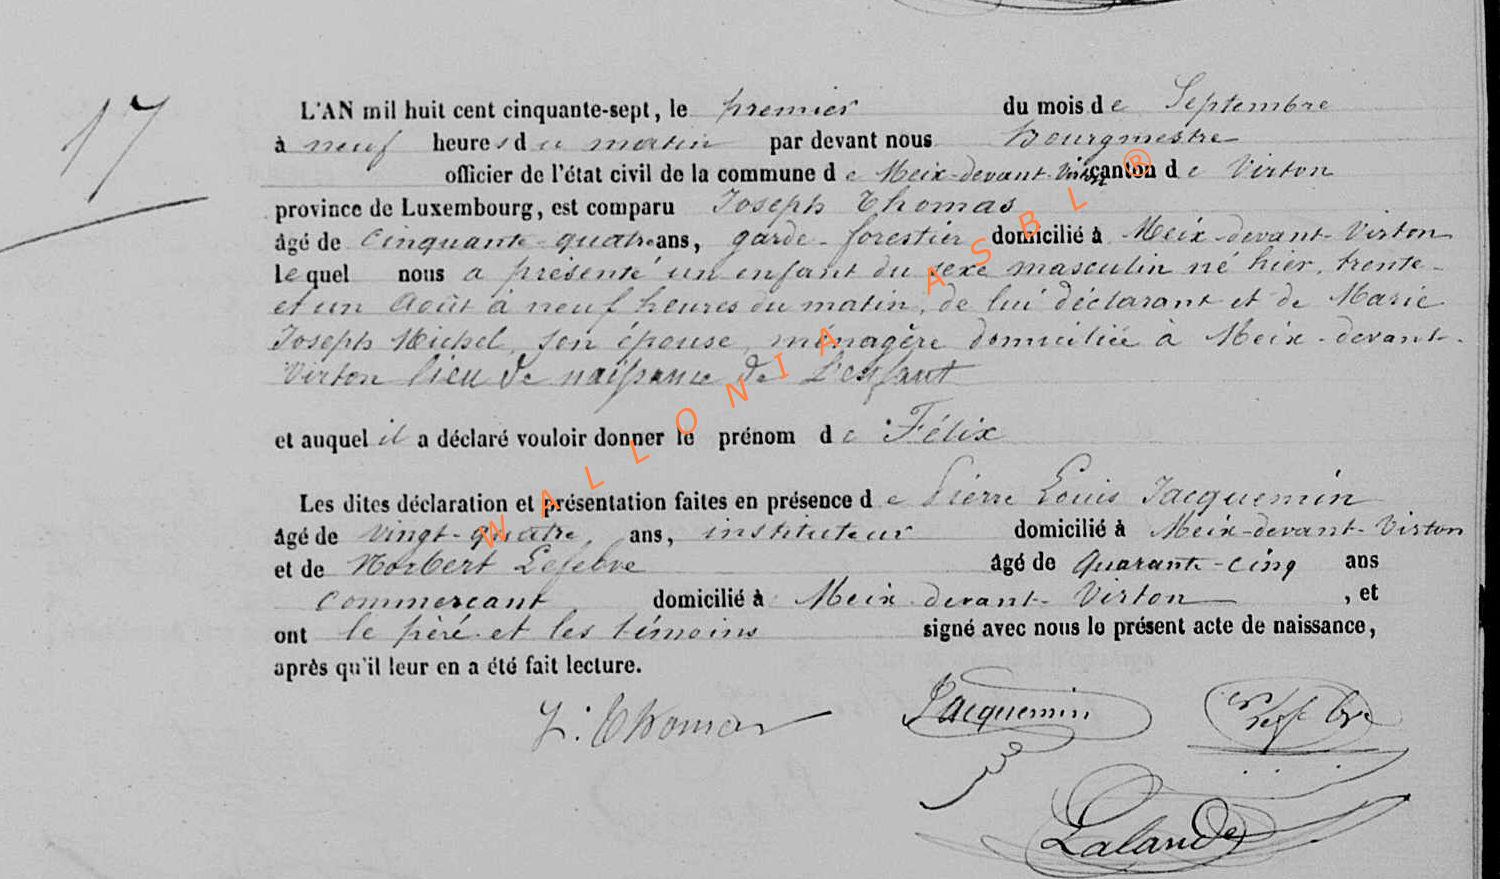 17
L'AN mil huit cent cinquante-sept, le premier du mois de Septembre
à neuf heures du matin par devant nous Bourgmestre
officier de l'état civil de la commune de Meix-devant-Virton canton de Virton
province de Luxembourg, est comparu Joseph Thomas
âgé de cinquante-quatre ans, garde-forestier domicilié à Meix-devant-Virton
lequel nous a présenté un enfant du sexe masculin né hier, trente-
et un Août à neuf heures du matin, de lui déclarant et de Marie
Joseph Michel, son épouse, ménagère domiciliée à Meix-devant-
Virton lieu de naissance de L'enfant
et auquel il a déclaré vouloir donner le prénom de Félix
Les dites déclaration et présentation faites en présence de Pierre Louis Jacquemin
âgé de vingt-quatre, ans, instituteur domicilié à Meix-devant-Virton
et de Norbert Lefebvre âgé de quarante-cinq ans
commerçant domicilié à Meix-devant-Virton, et
ont le père et les témoins signé avec nous le présent acte de naissance,
après qu'il leur en a été fait lecture.
J. Thomas Jacquemin
Lalande
WALLONIA ASBL ®